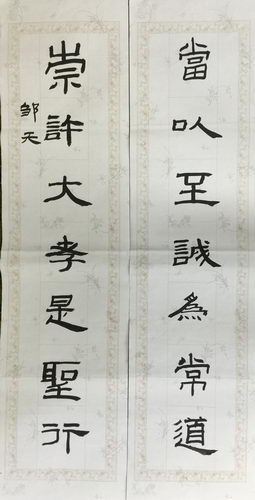 當以至誠為常道
崇許大孝是聖行
邹天